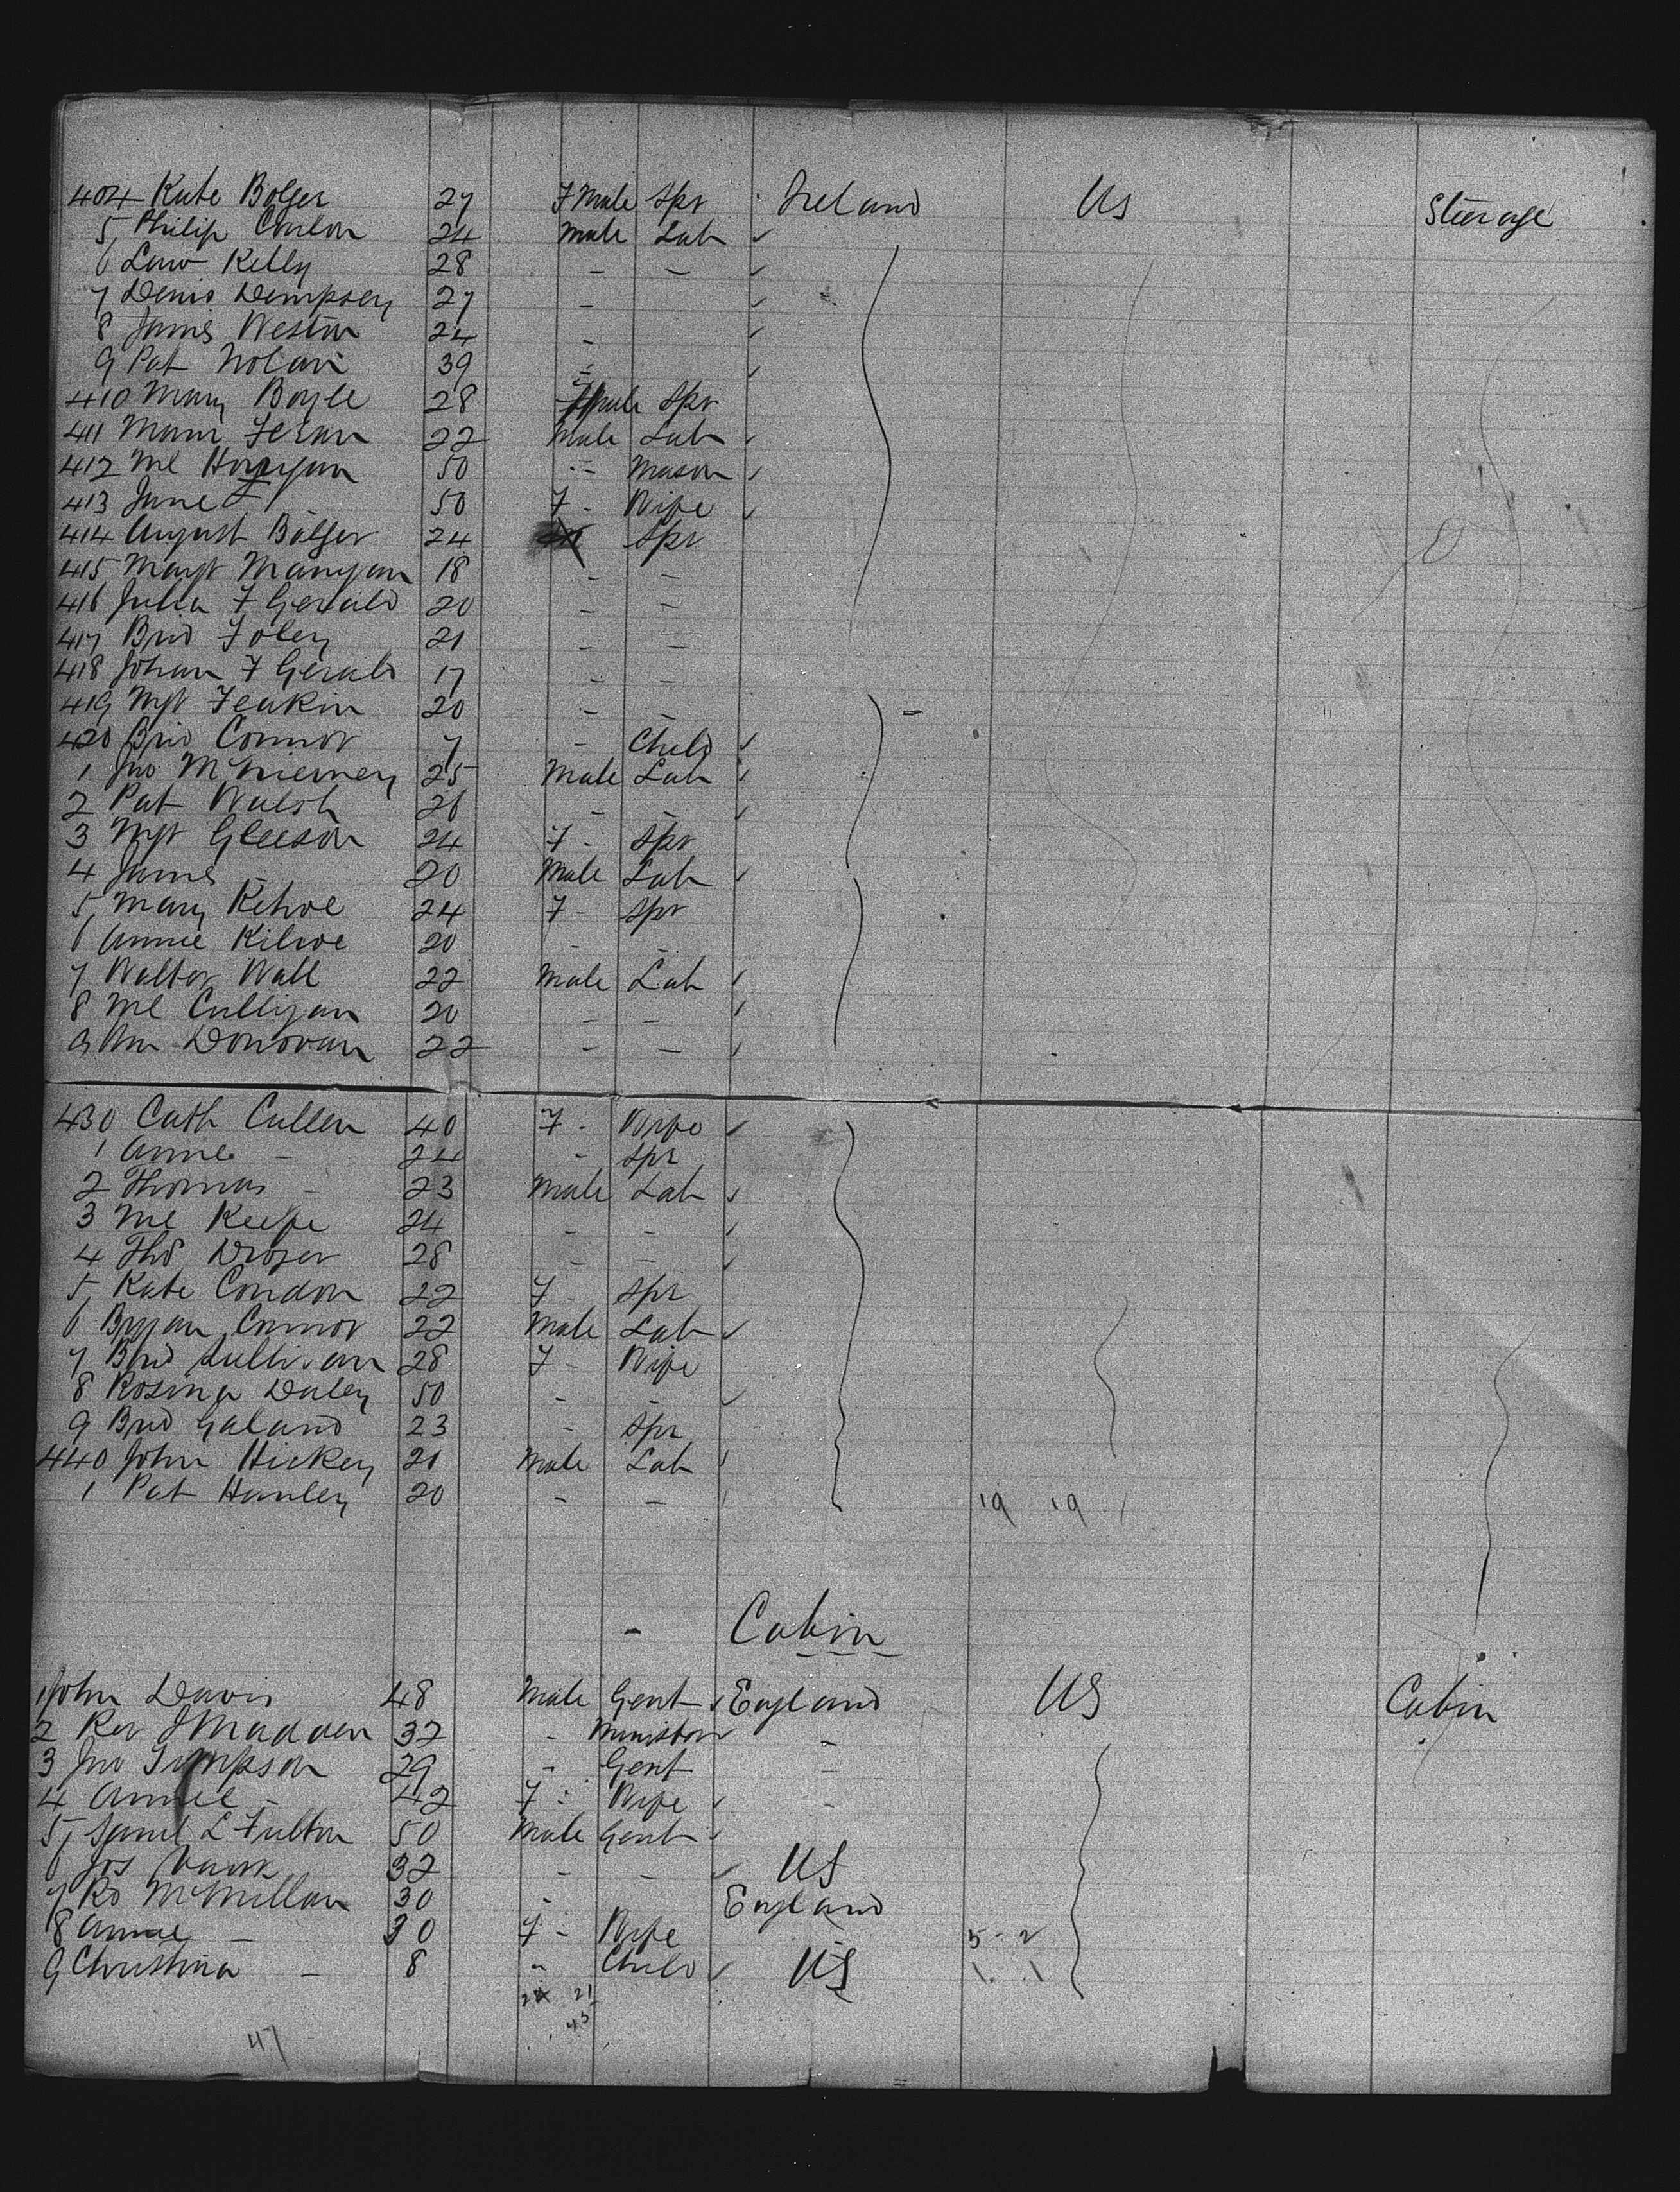 404 Kate Bolger 27 F Male Spr Ireland US Steerage
5 Philip Conlon 24 Male Lab
6 Law Kelly 28 - -
7 Denis Dempsey 27 -
8 James Weston 24 -
9 Pat Nolan 39 -
410 Mary Boyle 28 Fmale Spr
411 Feran 22 Male Lab
412 Ml 50 - Mason
413 Jane - 50 F - Wife
414 August Bolger 24 Spr
415 Margt Mangan 18 - -
416 Julia F Gerald 20 - -
417 Brid Foley 21 - -
418 Johan F Gerald 17 - -
419 Mgt Feakin 20 - -
420 Brid Connor 7 - Child
1 Jno McNierney 25 Male Lab
2 Pat Walsh 26 - -
3 Mgt Gleeson 24 F - Spr
4 James - 20 Male Lab
5 Mary Kehoe 24 F - Spr
6 Annie Kehoe 20 - -
7 Walter Wall 22 Male Lab
8 Ml Culligan 20 - -
9 Wm Donovan 22 - -
430 Cath Cullen 40 F - Wife
1 Annie - 24 - Spr
2 Thomas - 23 Male Lab
3 Ml Keefe 24 - -
4 Thos 28 - -
5 Kate Condon 22 F - Spr
6 Bryan Connor 22 Male Lab
7 Brid Sullivan 28 F - Wife
8 Rosina Daley 50 - -
9 Brid Galand 23 - Spr
440 John Hickey 21 Male Lab
1 Pat Hanley 20 - - 19 19
- Cabin
1 John Davis 48 Male Gent England US Cabin
2 Rev J Madden 32 - Minister -
3 Jno Simpson 29 - Gent -
4 Annie - 42 F - Wife -
5 Saml L Fulton 50 Male Gent
6 Jos 32 - - US
7 Ro McMillan 30 - England
8 Annie - 30 F - Wife 5 - 2
9 Christina - 8 - Child US 1 . 1
21
43
47